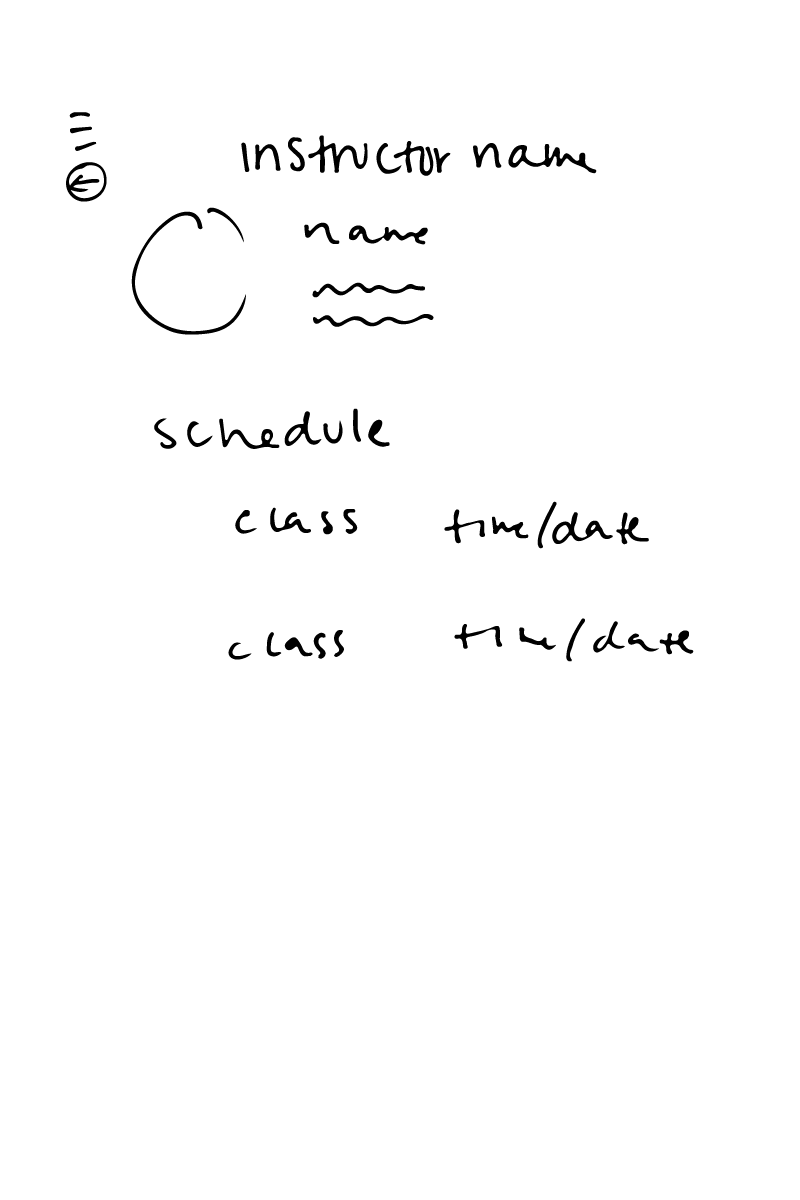 instructor name
name
schedule
class time/date
class time/date